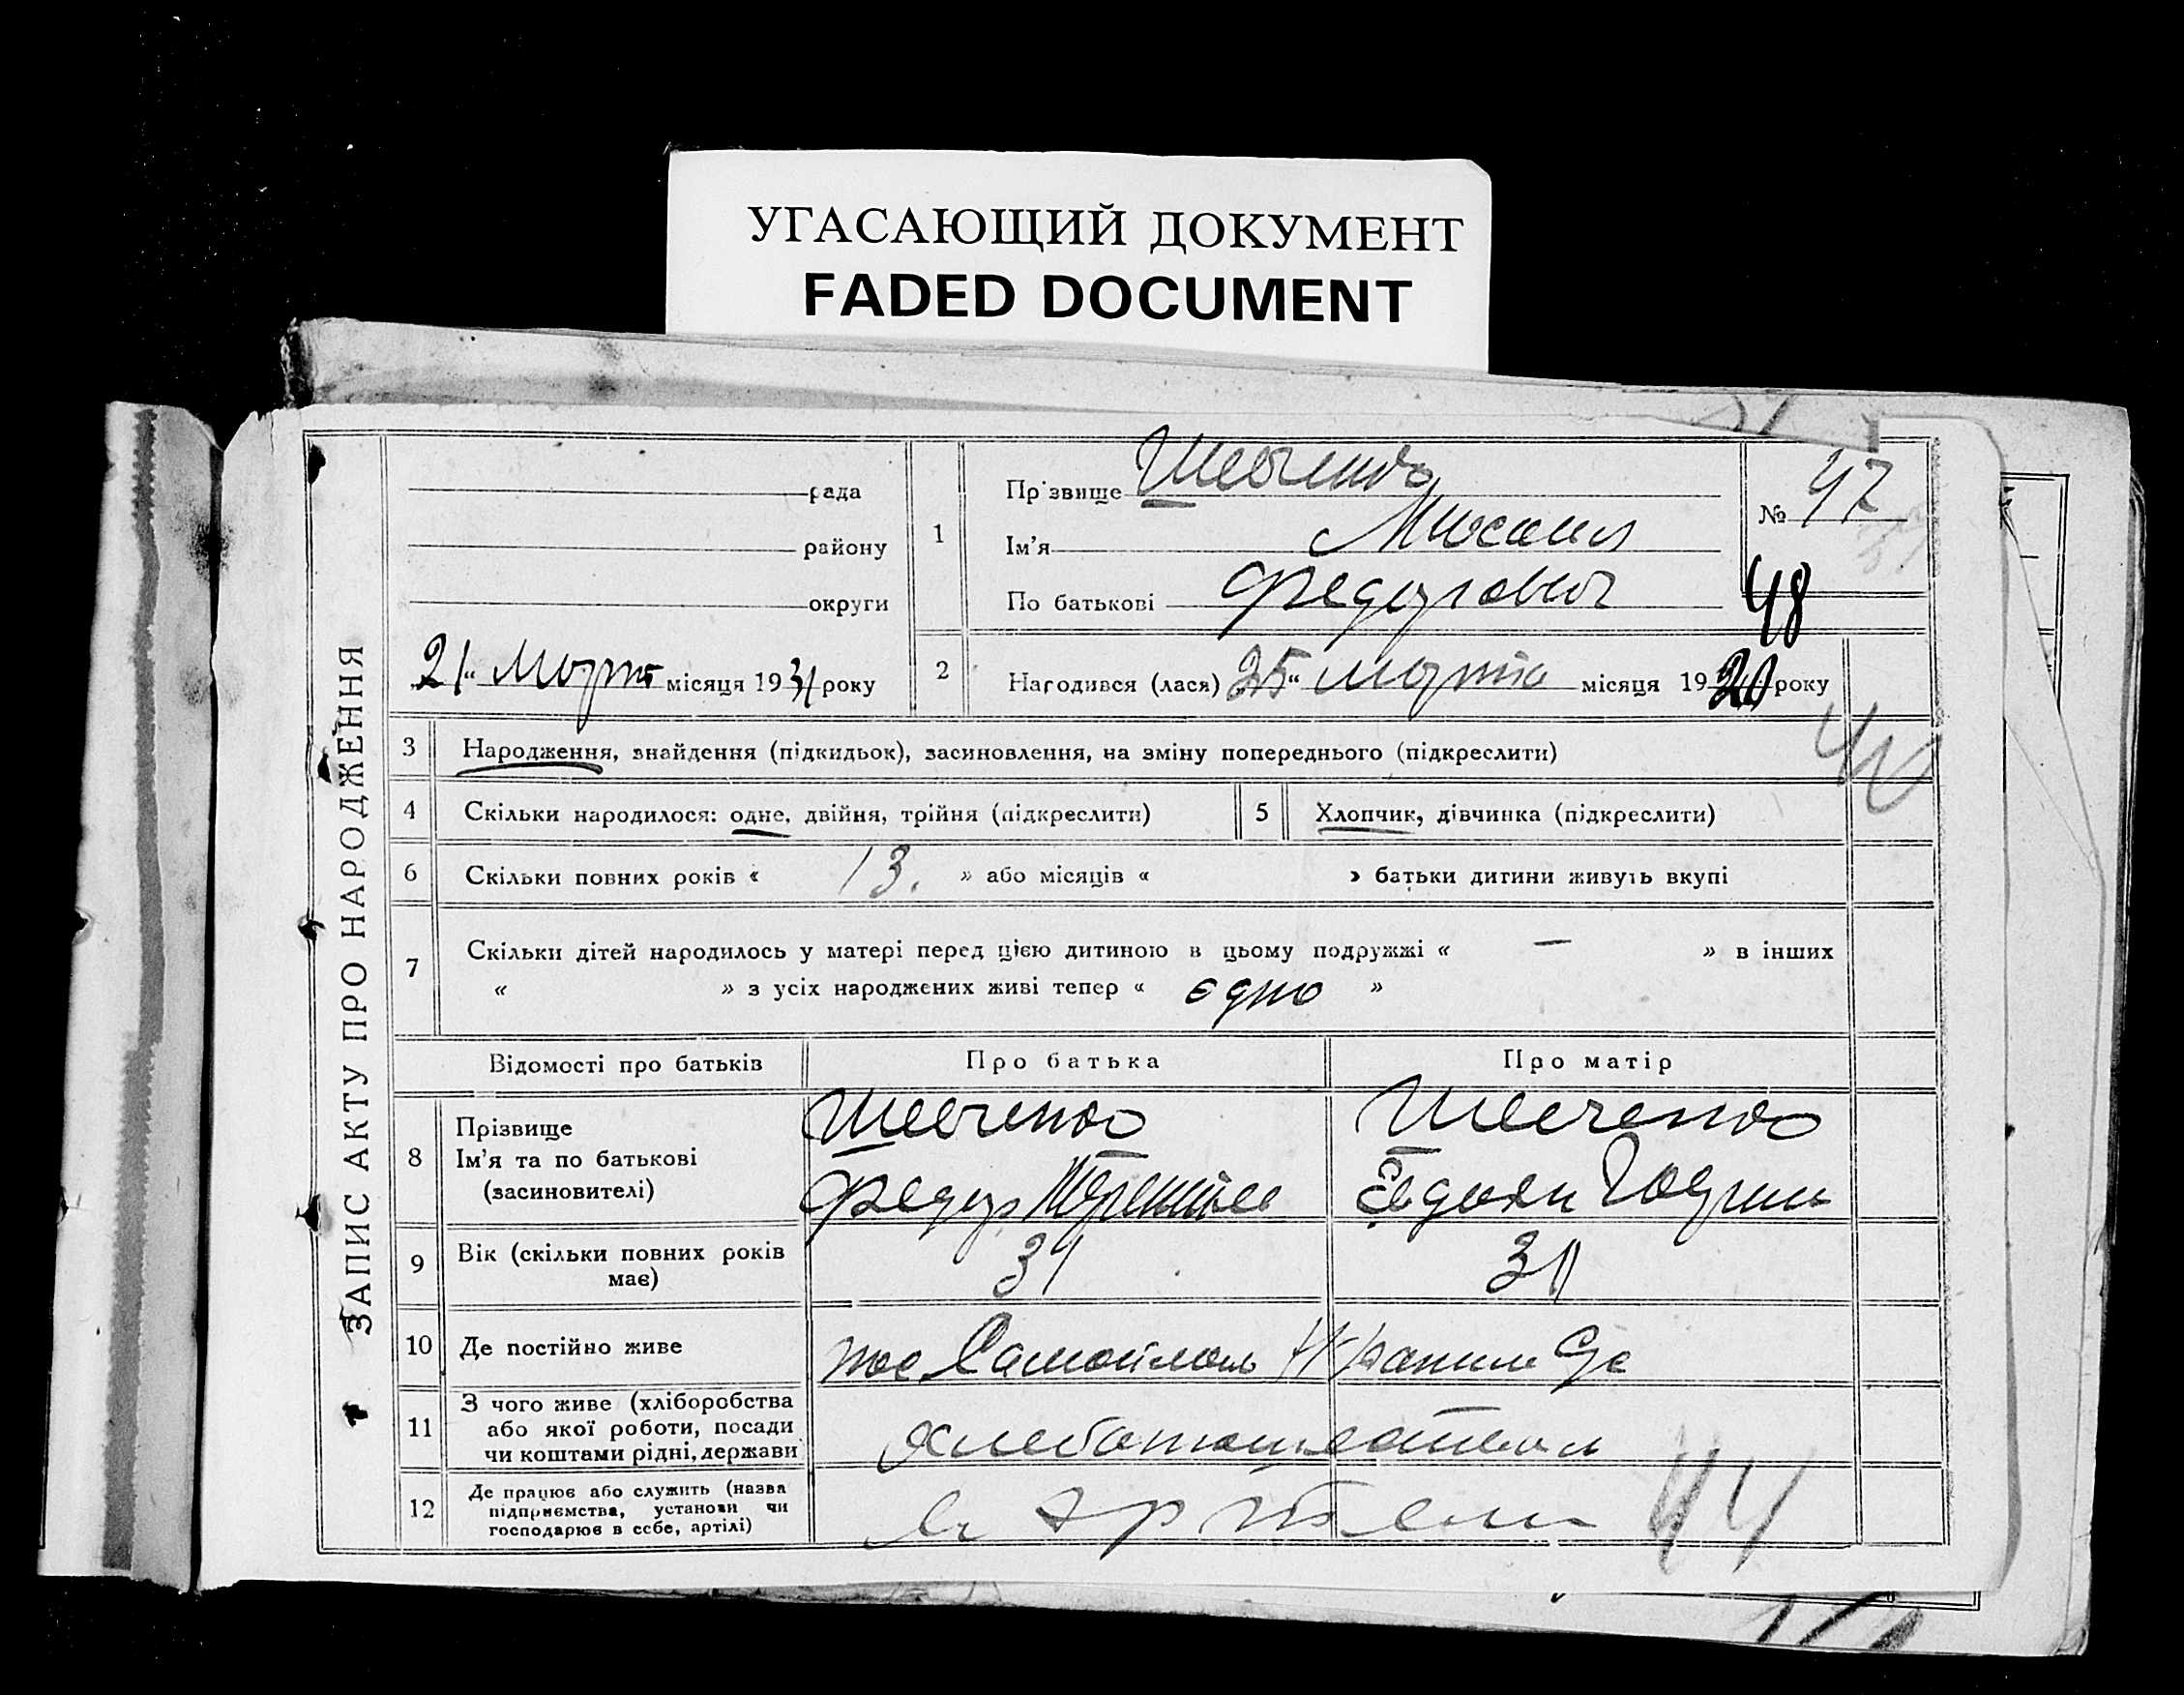 УГАСАЮЩИЙ ДОКУМЕНТ
FADED DOCUMENT
ЗАПИС АКТУ ПРО НАРОДЖЕННЯ
рада
району
округи
21 " марта місяця 1931 року
1
Прізвище Шевченко
Ім'я Михаил
По батькові Федорович
№ 47
48
2
Народився (лася) 25 " марта місяця 1920 року
3 Народження, знайдення (підкидьок), засиновлення, на зміну попереднього (підкреслити)
4 Скільки народилося: одне, двійня, трійня (підкреслити)
5 Хлопчик, дівчинка (підкреслити)
6 Скільки повних років « 13. » або місяців « » батьки дитини живуть вкупі
7 Скільки дітей народилось у матері перед цією дитиною в цьому подружжі « — » в інших
« » з усіх народжених живі тепер « єдно »
Відомості про батьків
Про батька
Про матір
8 Прізвище
Ім'я та по батькові
(засиновителі)
Шевченко
Федор
Шевченко
9 Вік (скільки повних років
має)
31
10 Де постійно живе
пос
11 З чого живе (хліборобства
або якої роботи, посади
чи коштами рідні, держави
12 Де працює або служить (назва
підприємства, установи чи
господарює в себе, артілі)
44